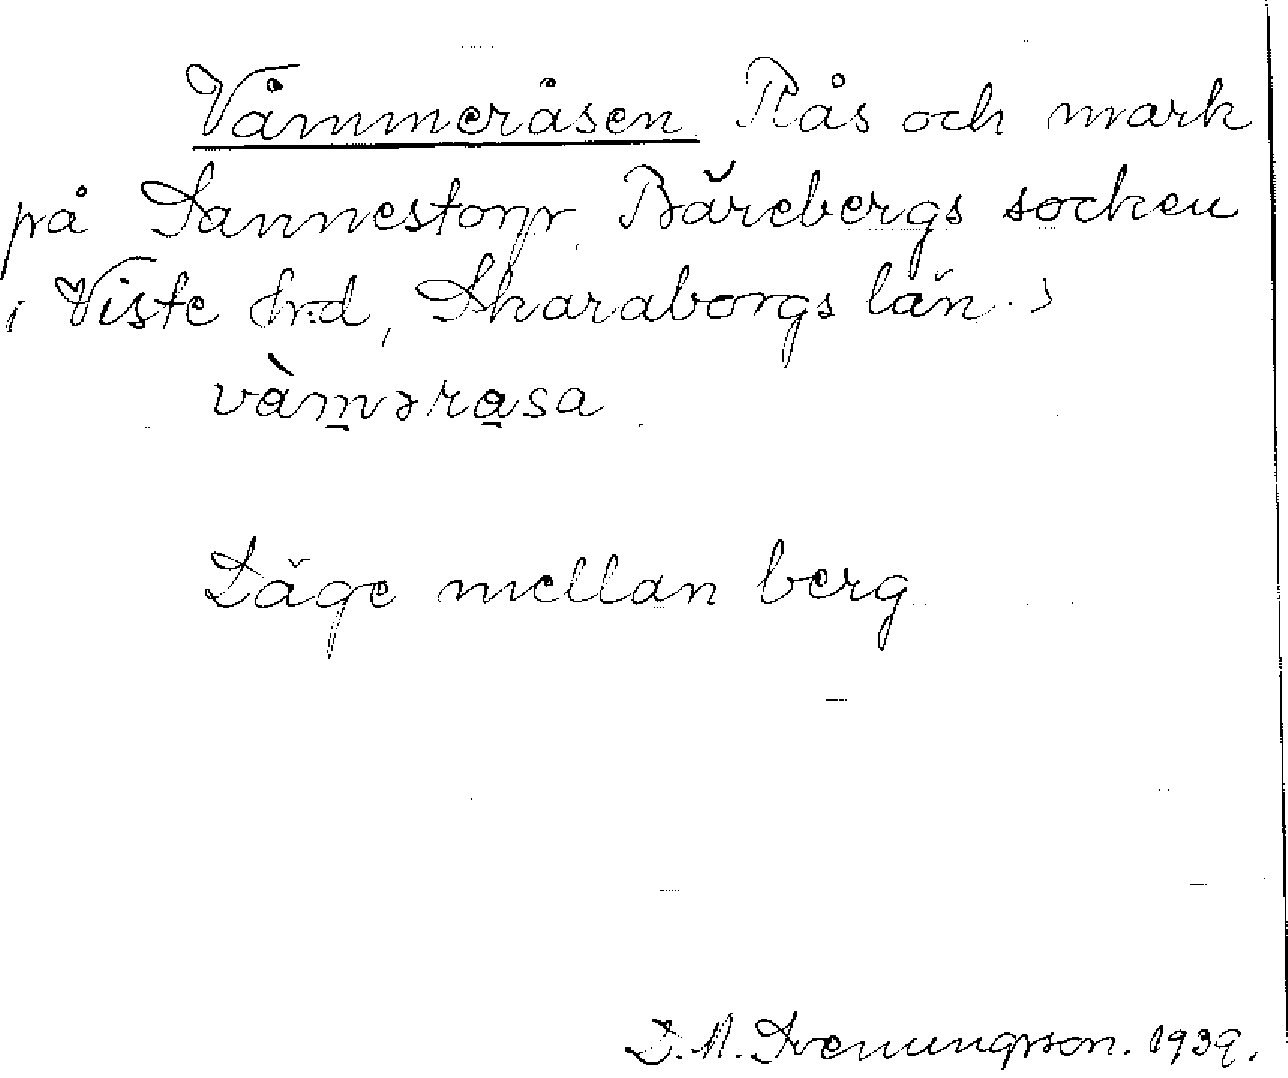 Våmmeråsen Rås och mark
på Sannestorp Bärebergs socken
i Viste hrd, Skaraborgs län.
vàmərasa
Läge mellan berg
D. A. Svenungsson. 1939.